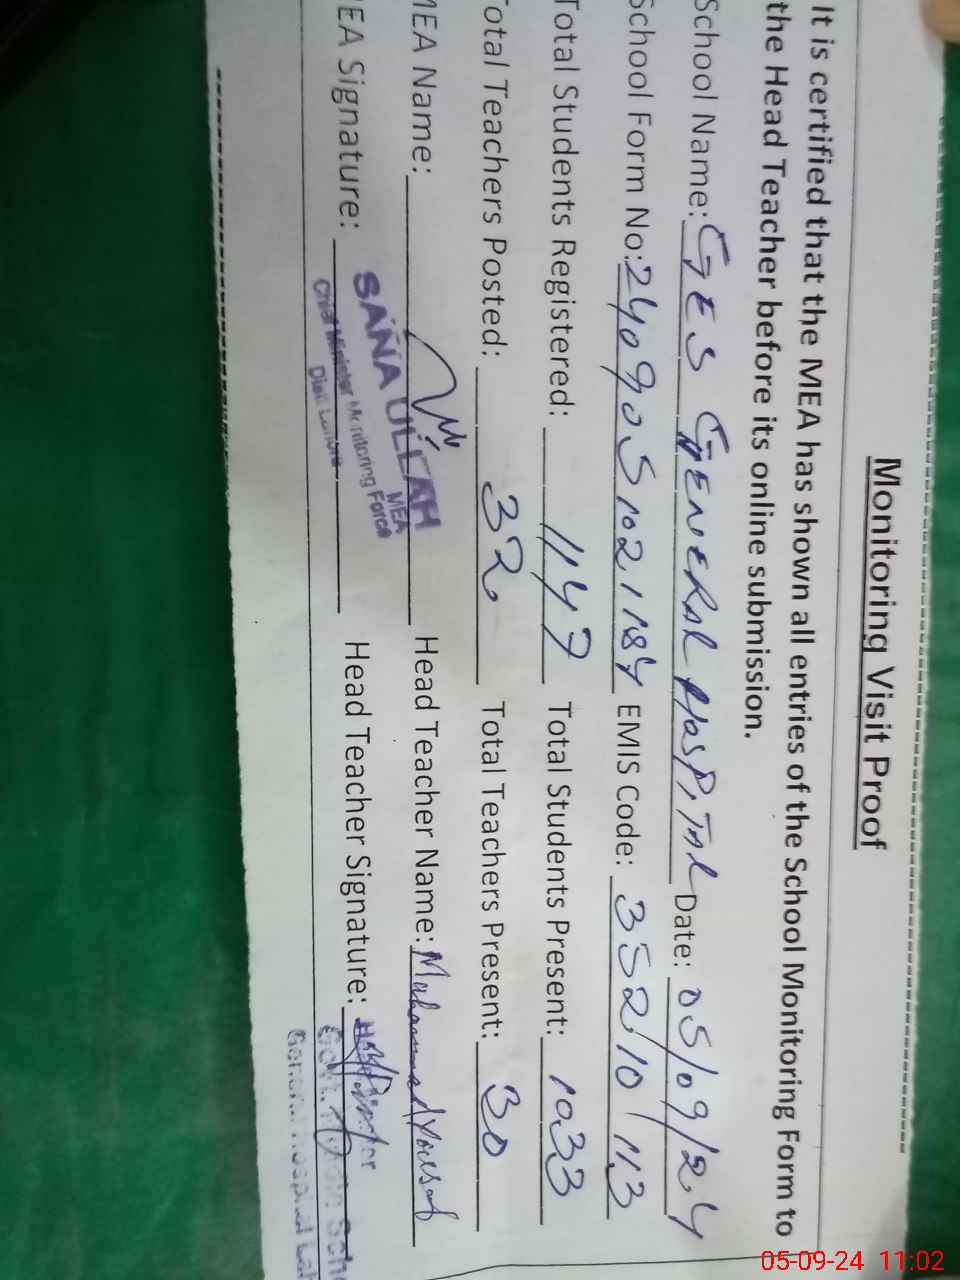 Monitoring Visit Proof
It is certified that the MEA has shown all entries of the School Monitoring Form to
the Head Teacher before its online submission.
School Name: GES GENERAL HOSPITAL Date: 05/09/24
School Form No: 2409051021184 EMIS Code: 35210113
Total Students Registered: 1147 Total Students Present: 1033
Total Teachers Posted: 32 Total Teachers Present: 30
MEA Name: Head Teacher Name: Muhammad Yousaf
SANA ULLAH
MEA
Chief Minister Monitoring Force
Distt Lahore
EA Signature: Head Teacher Signature:
Govt. Sch
General Hospital Lah
05-09-24 11:02